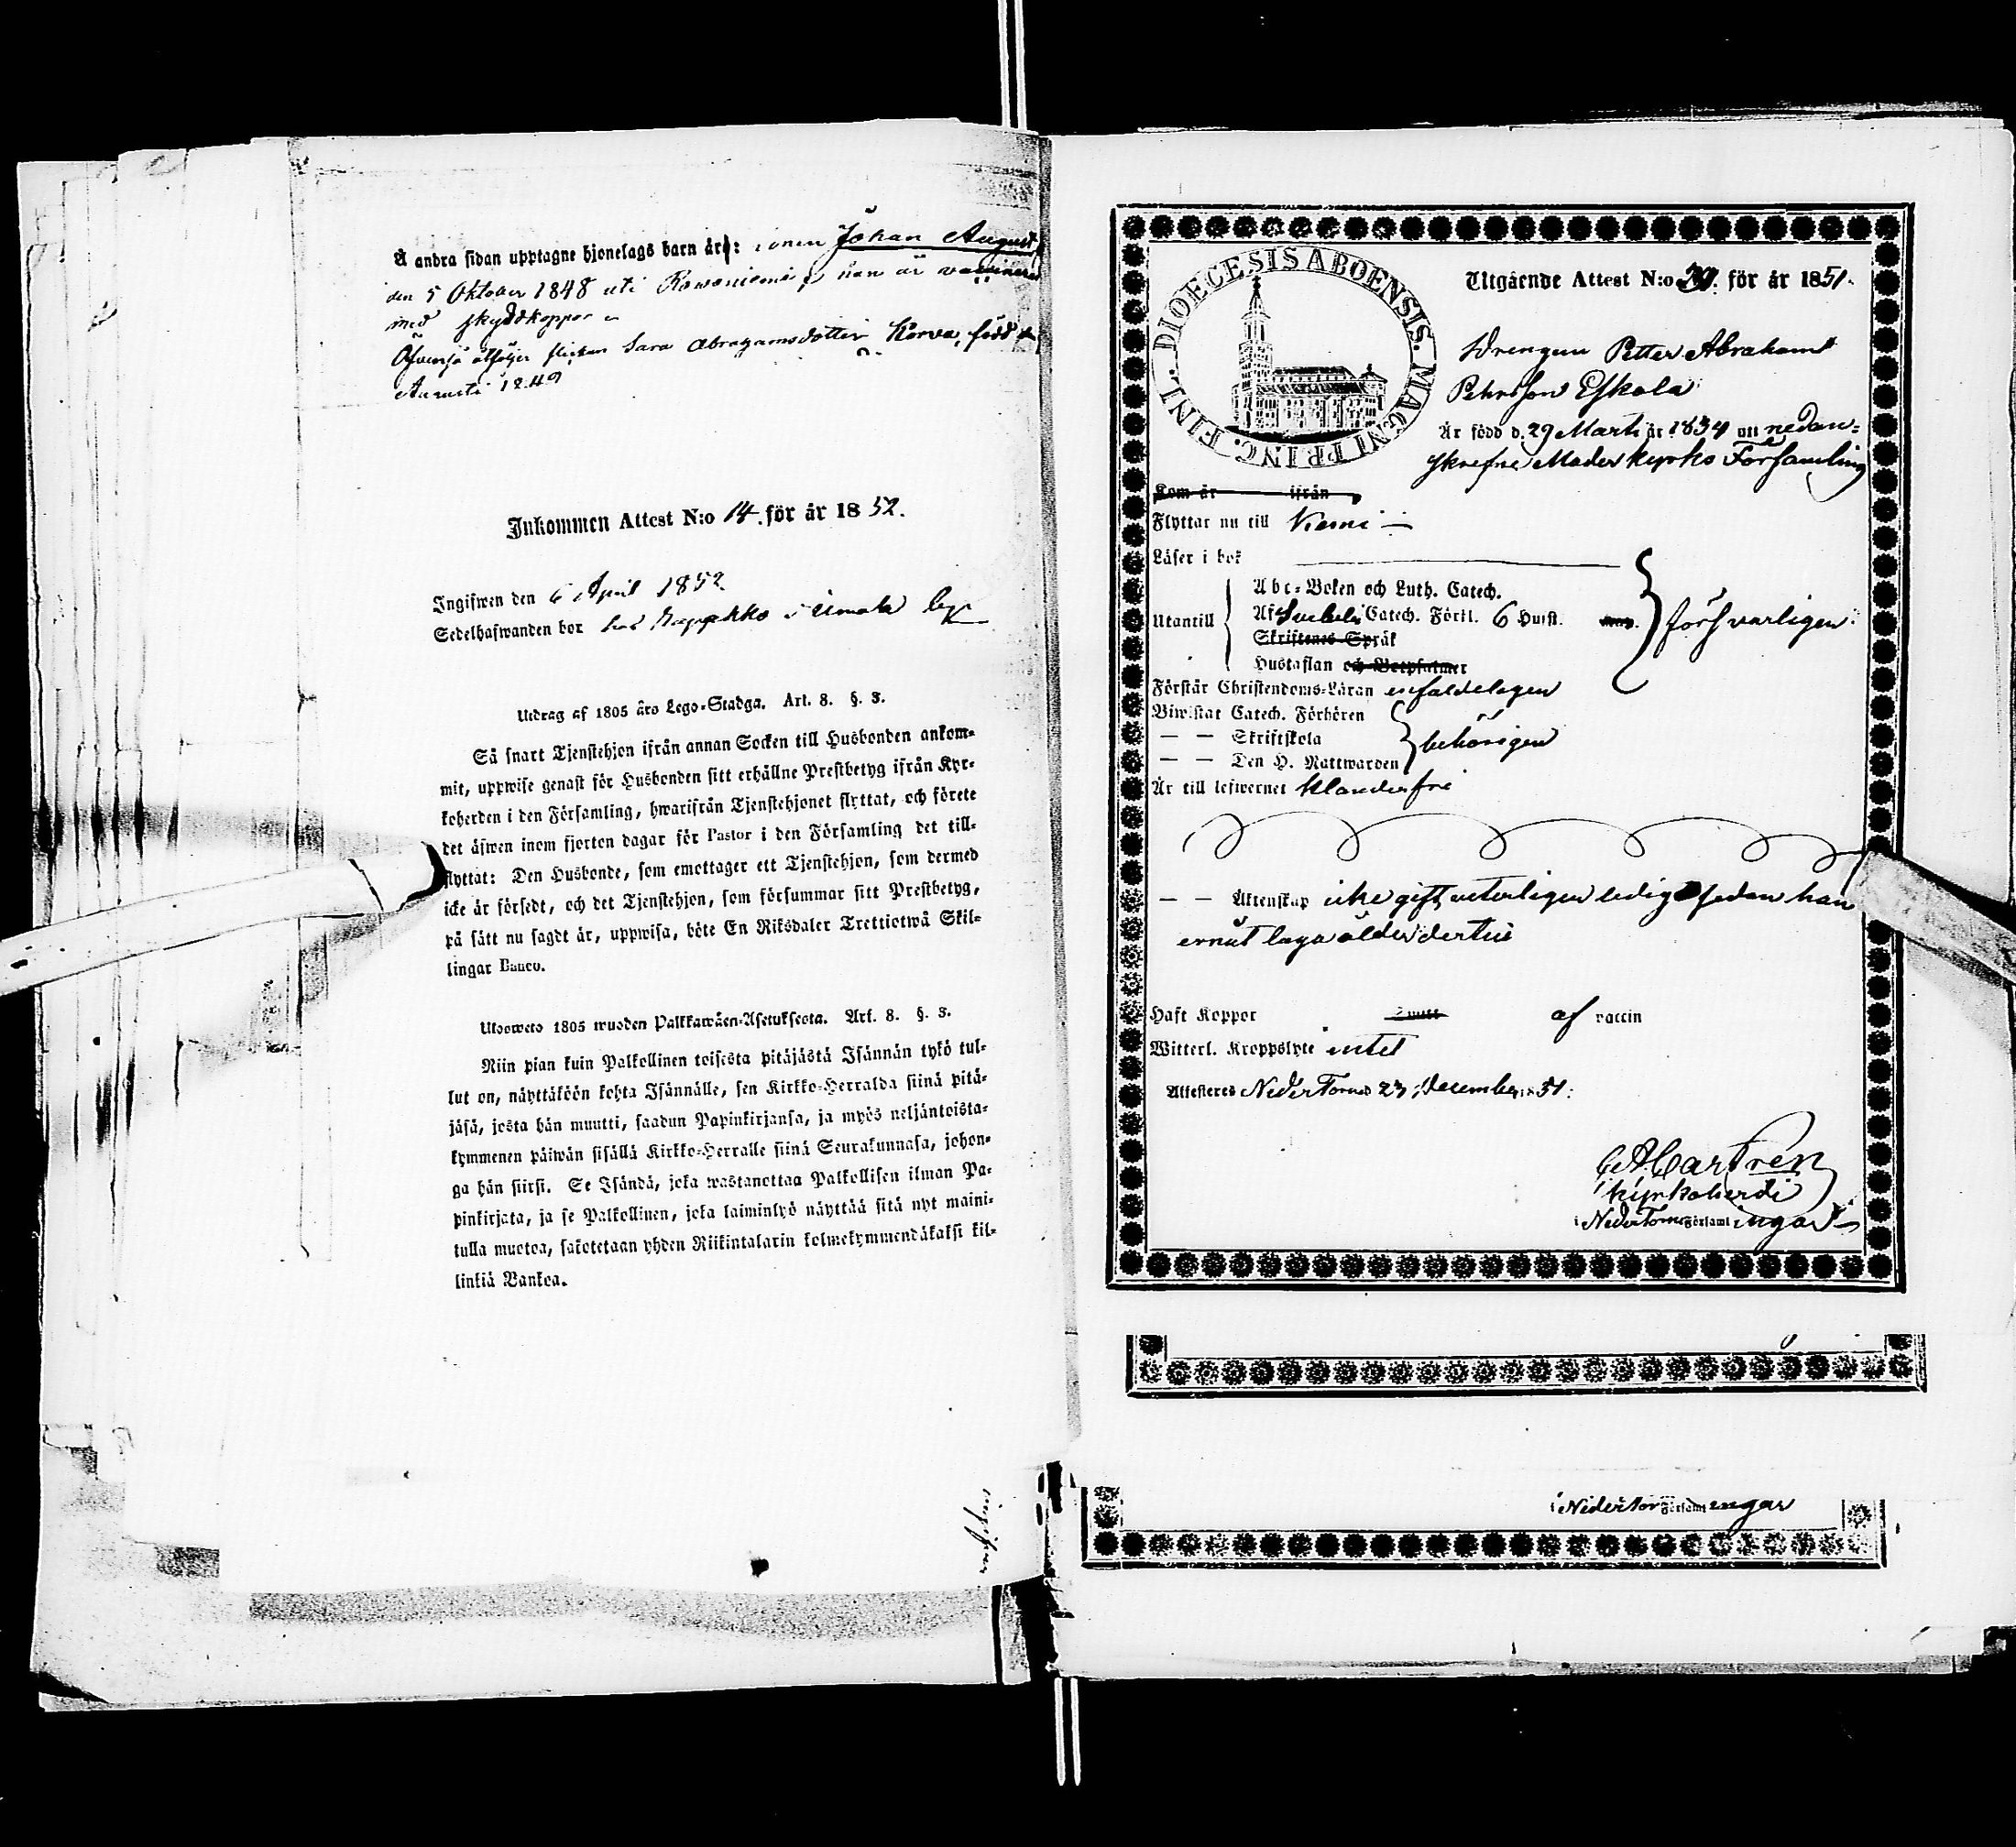 Å andra sidan upptagne hjonelags barn är: sonen Johan August
den 5 Oktober 1848 uti Rowaniemi, han är vaccinerad
med skyddkoppor
Äfvenså åtföljer flickan Sara Abrahamsdotter Korva, född
Augusti 1849
Inkommen Attest N:o 14. för år 1852.
Ingifwen den 6 April 1852
Sedelhafwanden bor hos i Simola by
Utdrag af 1805 års Lego-Stadga. Art. 8. §. 3.
Så snart Tjenstehjon ifrån annan Socken till Husbonden ankom-
mit, uppwise genast för Husbonden sitt erhållne Prestbetyg ifrån Kyr-
koherden i den Församling, hwarifrån Tjenstehjonet flyttat, och förete
det äfwen inom fjorton dagar för Pastor i den Församling det till-
flyttat: Den Husbonde, som emottager ett Tjenstehjon, som dermed
icke är försedt, och det Tjenstehjon, som försummar sitt Prestbetyg,
på sätt nu sagdt är, uppwisa, böte En Riksdaler Trettiotwå Skil-
lingar Banco.
Utoweto 1805 wuoden Palkkawäen-Asetuksesta. Art. 8. §. 3.
Niin pian kuin Palkollinen toisesta pitäjästä Isännän tykö tul-
lut on, näyttäköön kohta Isännälle, sen Kirkko-Herralda siinä pitä-
jäsä, josta hän muutti, saadun Papinkirjansa, ja myös neljäntoista-
kymmenen päiwän sisällä Kirkko-Herralle siinä Seurakunnasa, johon-
ga hän siirsi. Se Isändä, joka wastanottaa Palkollisen ilman Pa-
pinkirjata, ja se Palkollinen, joka laiminlyö näyttää sitä nyt maini-
tulla muotoa, sakotetaan yhden Riikintalarin kolmekymmendäkaksi kil-
linkiä Bankoa.
DIOECESIS ABOENSIS. MAGNI PRINC. FINL.
Utgående Attest N:o 39. för år 1851.
Drengen Petter Abraham
Pehrsson Eskola
Är född d. 29 Marti år 1834 uti nedan-
skrefne Moderkyrko Församling
Kom år ifrån
Flyttar nu till Kemi
Läser i bok
Utantill
Abc-Boken och Luth. Catech.
Af Svebeli Catech. Förkl. 6 Hufst.
försvarligen
Skriftenes Språk
Hustaflan och Botpsalmer
Förstår Christendoms-Läran enfaldeligen
Biwistat Catech. Förhören
— — Skriftskola
behörigen
— — Den H. Nattwarden
Är till lefwernet klanderfri
— — Äktenskap icke gift, veterligen ledig sedan han
ernåt laga ålder dertill
Haft Koppor af vaccin
Witterl. Kroppslyte intet
Attesteras Neder Torneå 23 December 1851.
C A Castrén
Kyrkoherde
i Neder Torneå Församlingar
i Neder Tor Församlingar